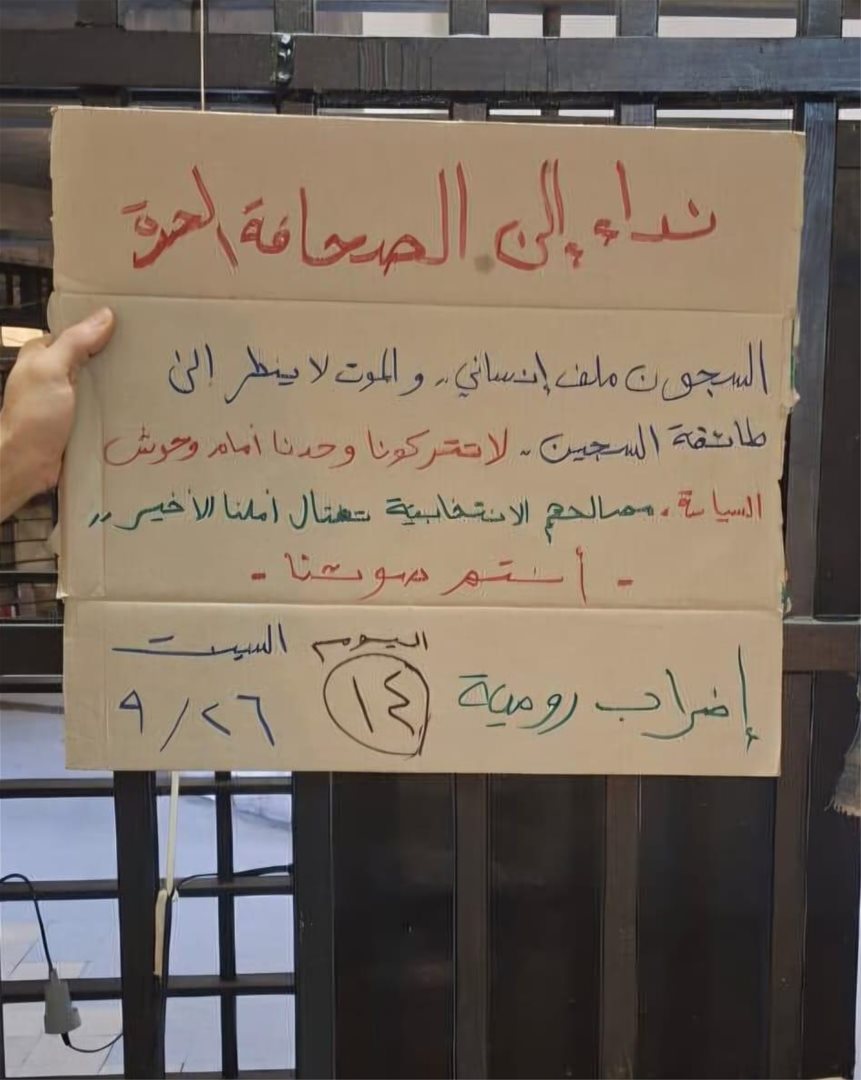 نداء إلى الصحافة الحرة
السجون ملف إنساني.. والموت لا ينظر إلى
طائفة السجين.. لا تتركونا وحدنا أمام وحوش
السياسة. مصالحهم الانتخابية تغتال أملنا الأخير..
- أنتم صوتنا -
إضراب رومية اليوم ١٤ السبت ٢٦/٩